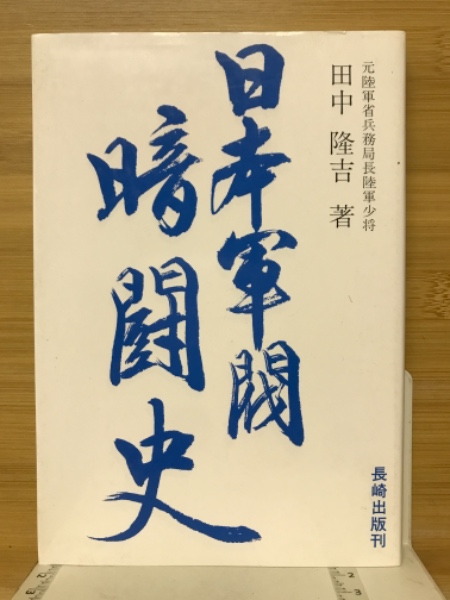 元陸軍省兵務局長陸軍少将
田中 隆吉 著
日本軍閥
暗闘史
長崎出版刊